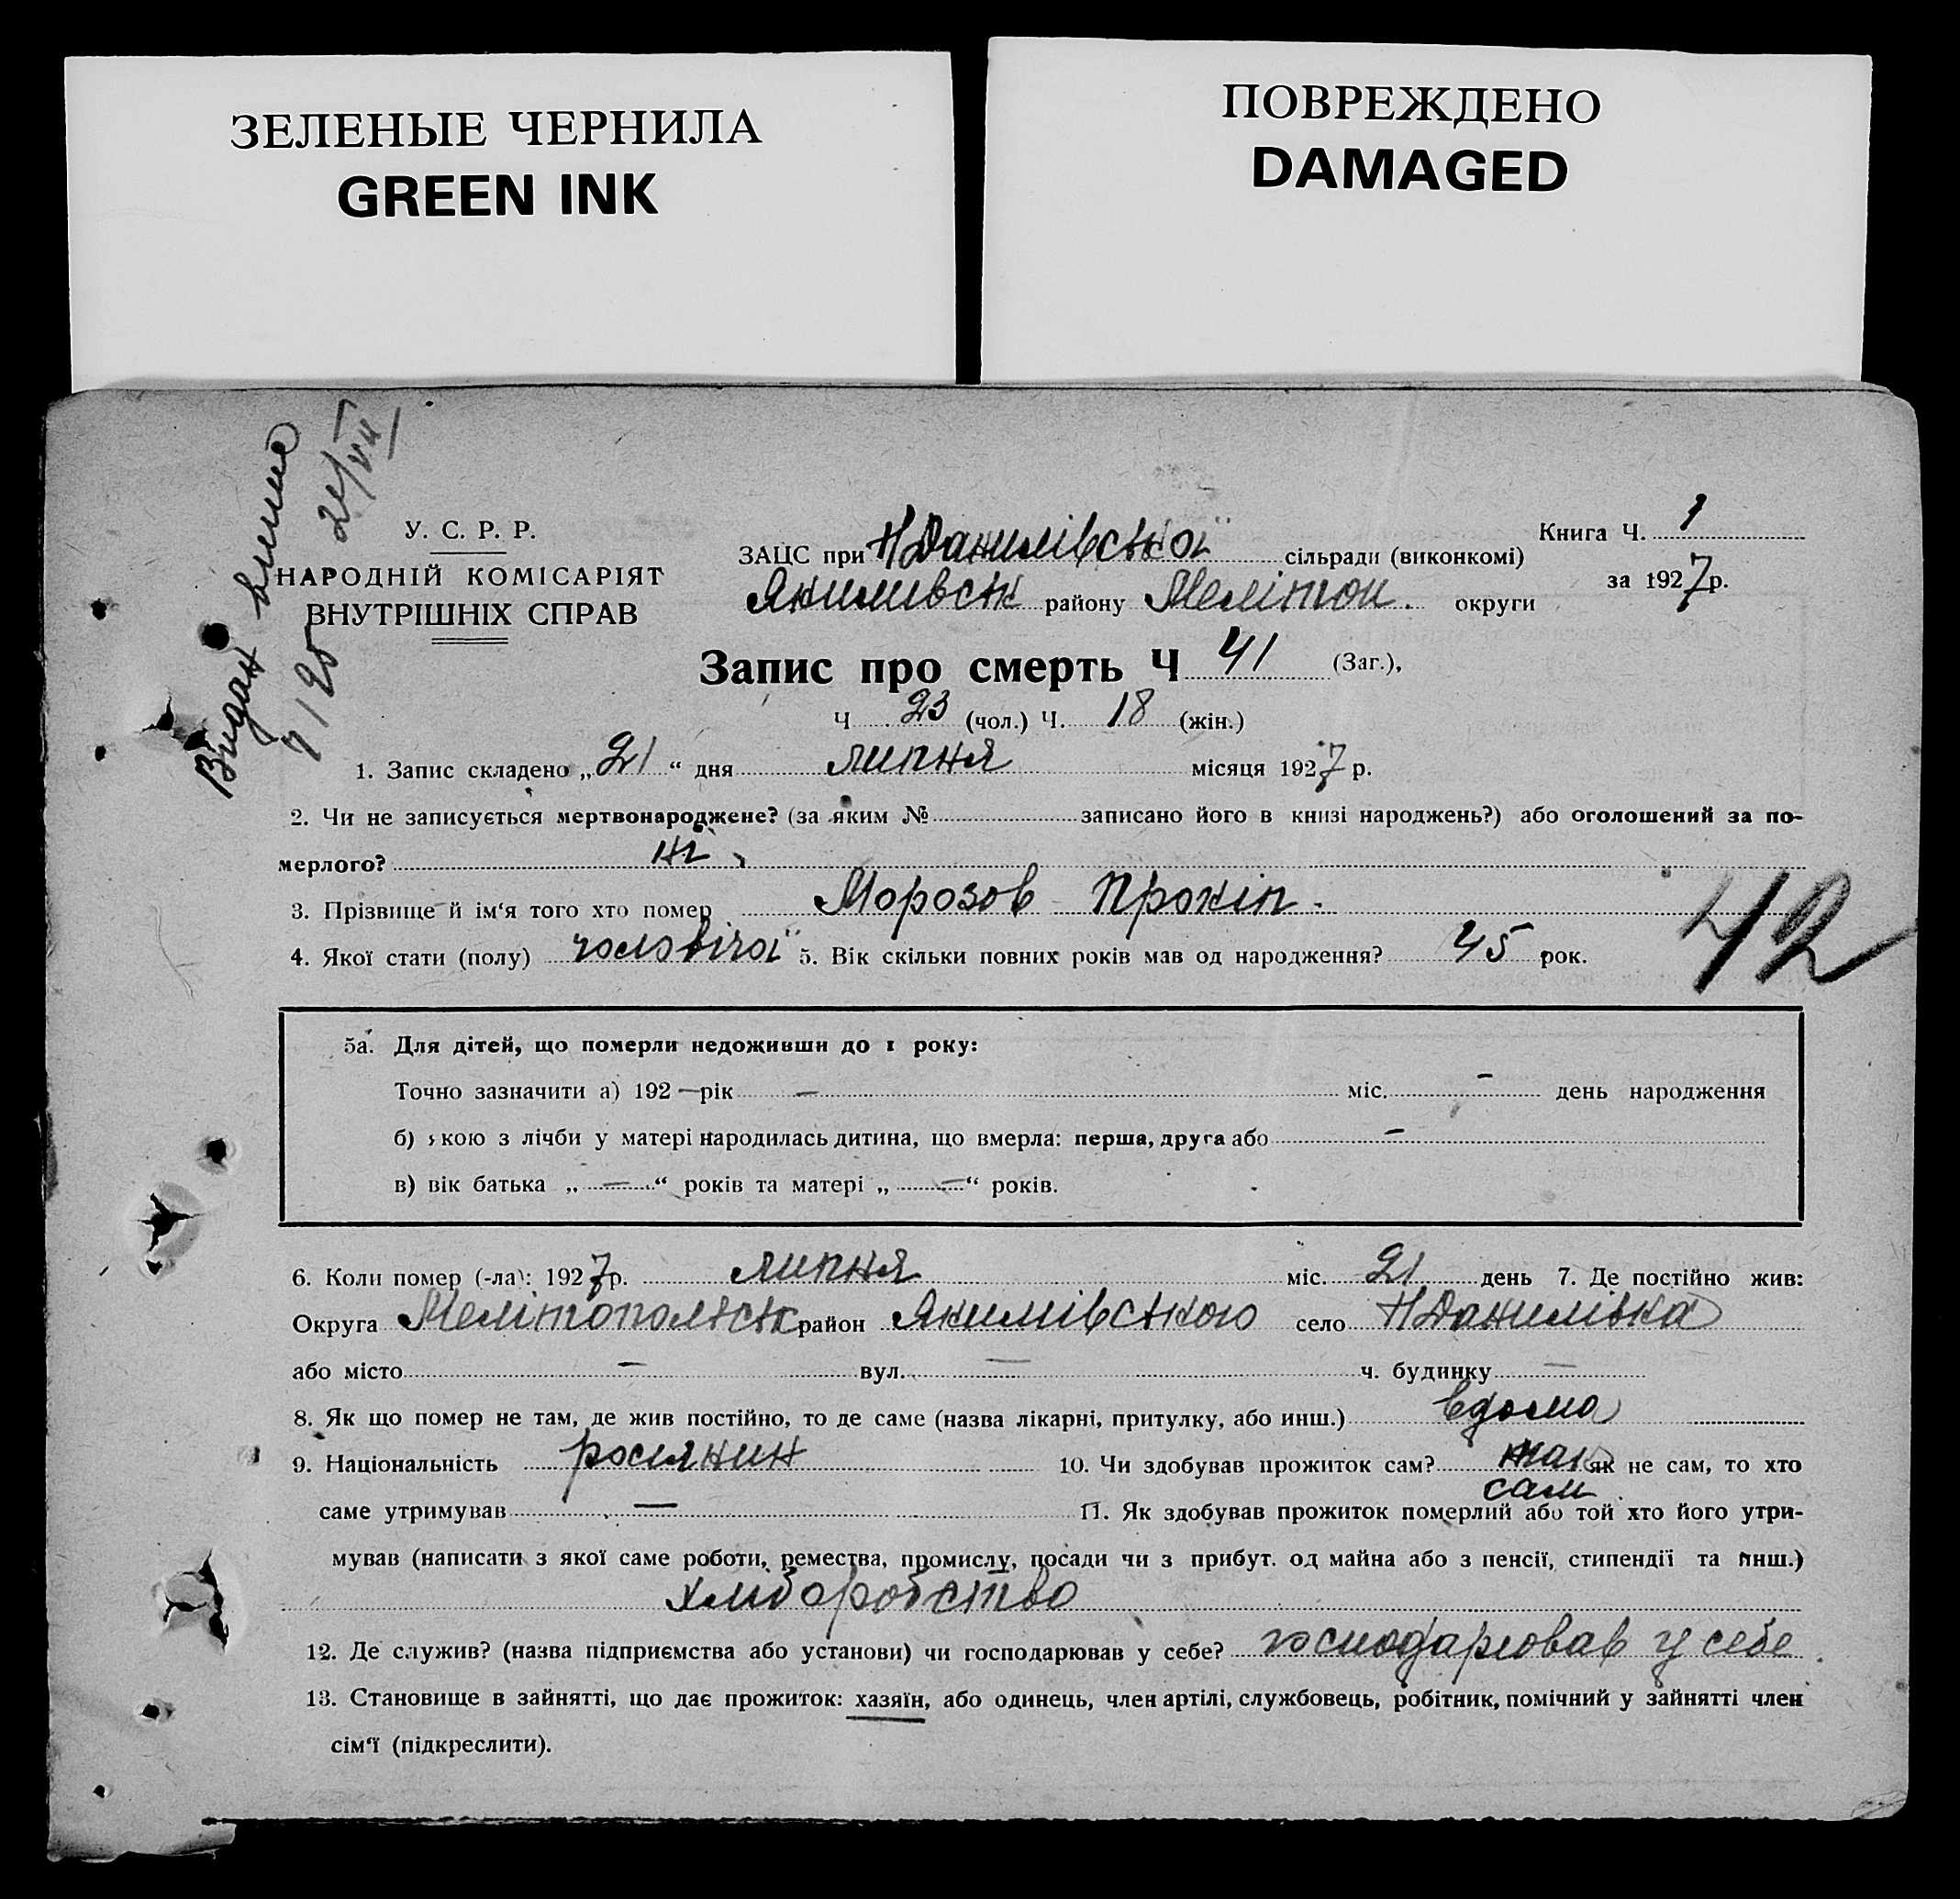 ЗЕЛЕНЫЕ ЧЕРНИЛА
GREEN INK
ПОВРЕЖДЕНО
DAMAGED
Видан
У. С. Р. Р.
НАРОДНІЙ КОМІСАРІЯТ
ВНУТРІШНІХ СПРАВ
ЗАЦС при Н Данилівської сільради (виконкомі)
Якимивськ району Мелітоп. округи
Книга Ч. 1
за 1927 р.
Запис про смерть Ч 41 (Заг.),
Ч 23 (чол.) Ч. 18 (жін.)
1. Запис складено „21“ дня липня місяця 1927 р.
2. Чи не записується мертвонароджене? (за яким № записано його в книзі народжень?) або оголошений за по-
мерлого? ні
3. Прізвище й ім‘я того хто помер Морозов Прокіп.
42
4. Якої стати (полу) чоловічої 5. Вік скільки повних років мав од народження? 45 рок.
5а. Для дітей, що померли недоживши до 1 року:
Точно зазначити а) 192— рік — міс. - день народження
б) якою з лічби у матері народилась дитина, що вмерла: перша, друга або -
в) вік батька „—“ років та матері „—“ років.
6. Коли помер (-ла): 1927 р. липня міс. 21 день 7. Де постійно жив:
Округа Мелітопольськ район Якимівського село Н Данилівка
або місто — вул. — ч. будинку —
8. Як що помер не там, де жив постійно, то де саме (назва лікарні, притулку, або инш.) вдома
9. Національність росіянин 10. Чи здобував прожиток сам? так як не сам, то хто
сам
саме утримував — 11. Як здобував прожиток померлий або той хто його утри-
мував (написати з якої саме роботи, ремества, промислу, посади чи з прибут. од майна або з пенсії, стипендії та инш.)
хліборобство
12. Де служив? (назва підприємства або установи) чи господарював у себе? господарював у себе
13. Становище в зайнятті, що дає прожиток: хазяїн, або одинець, член артілі, службовець, робітник, помічний у зайнятті член
сім‘ї (підкреслити).